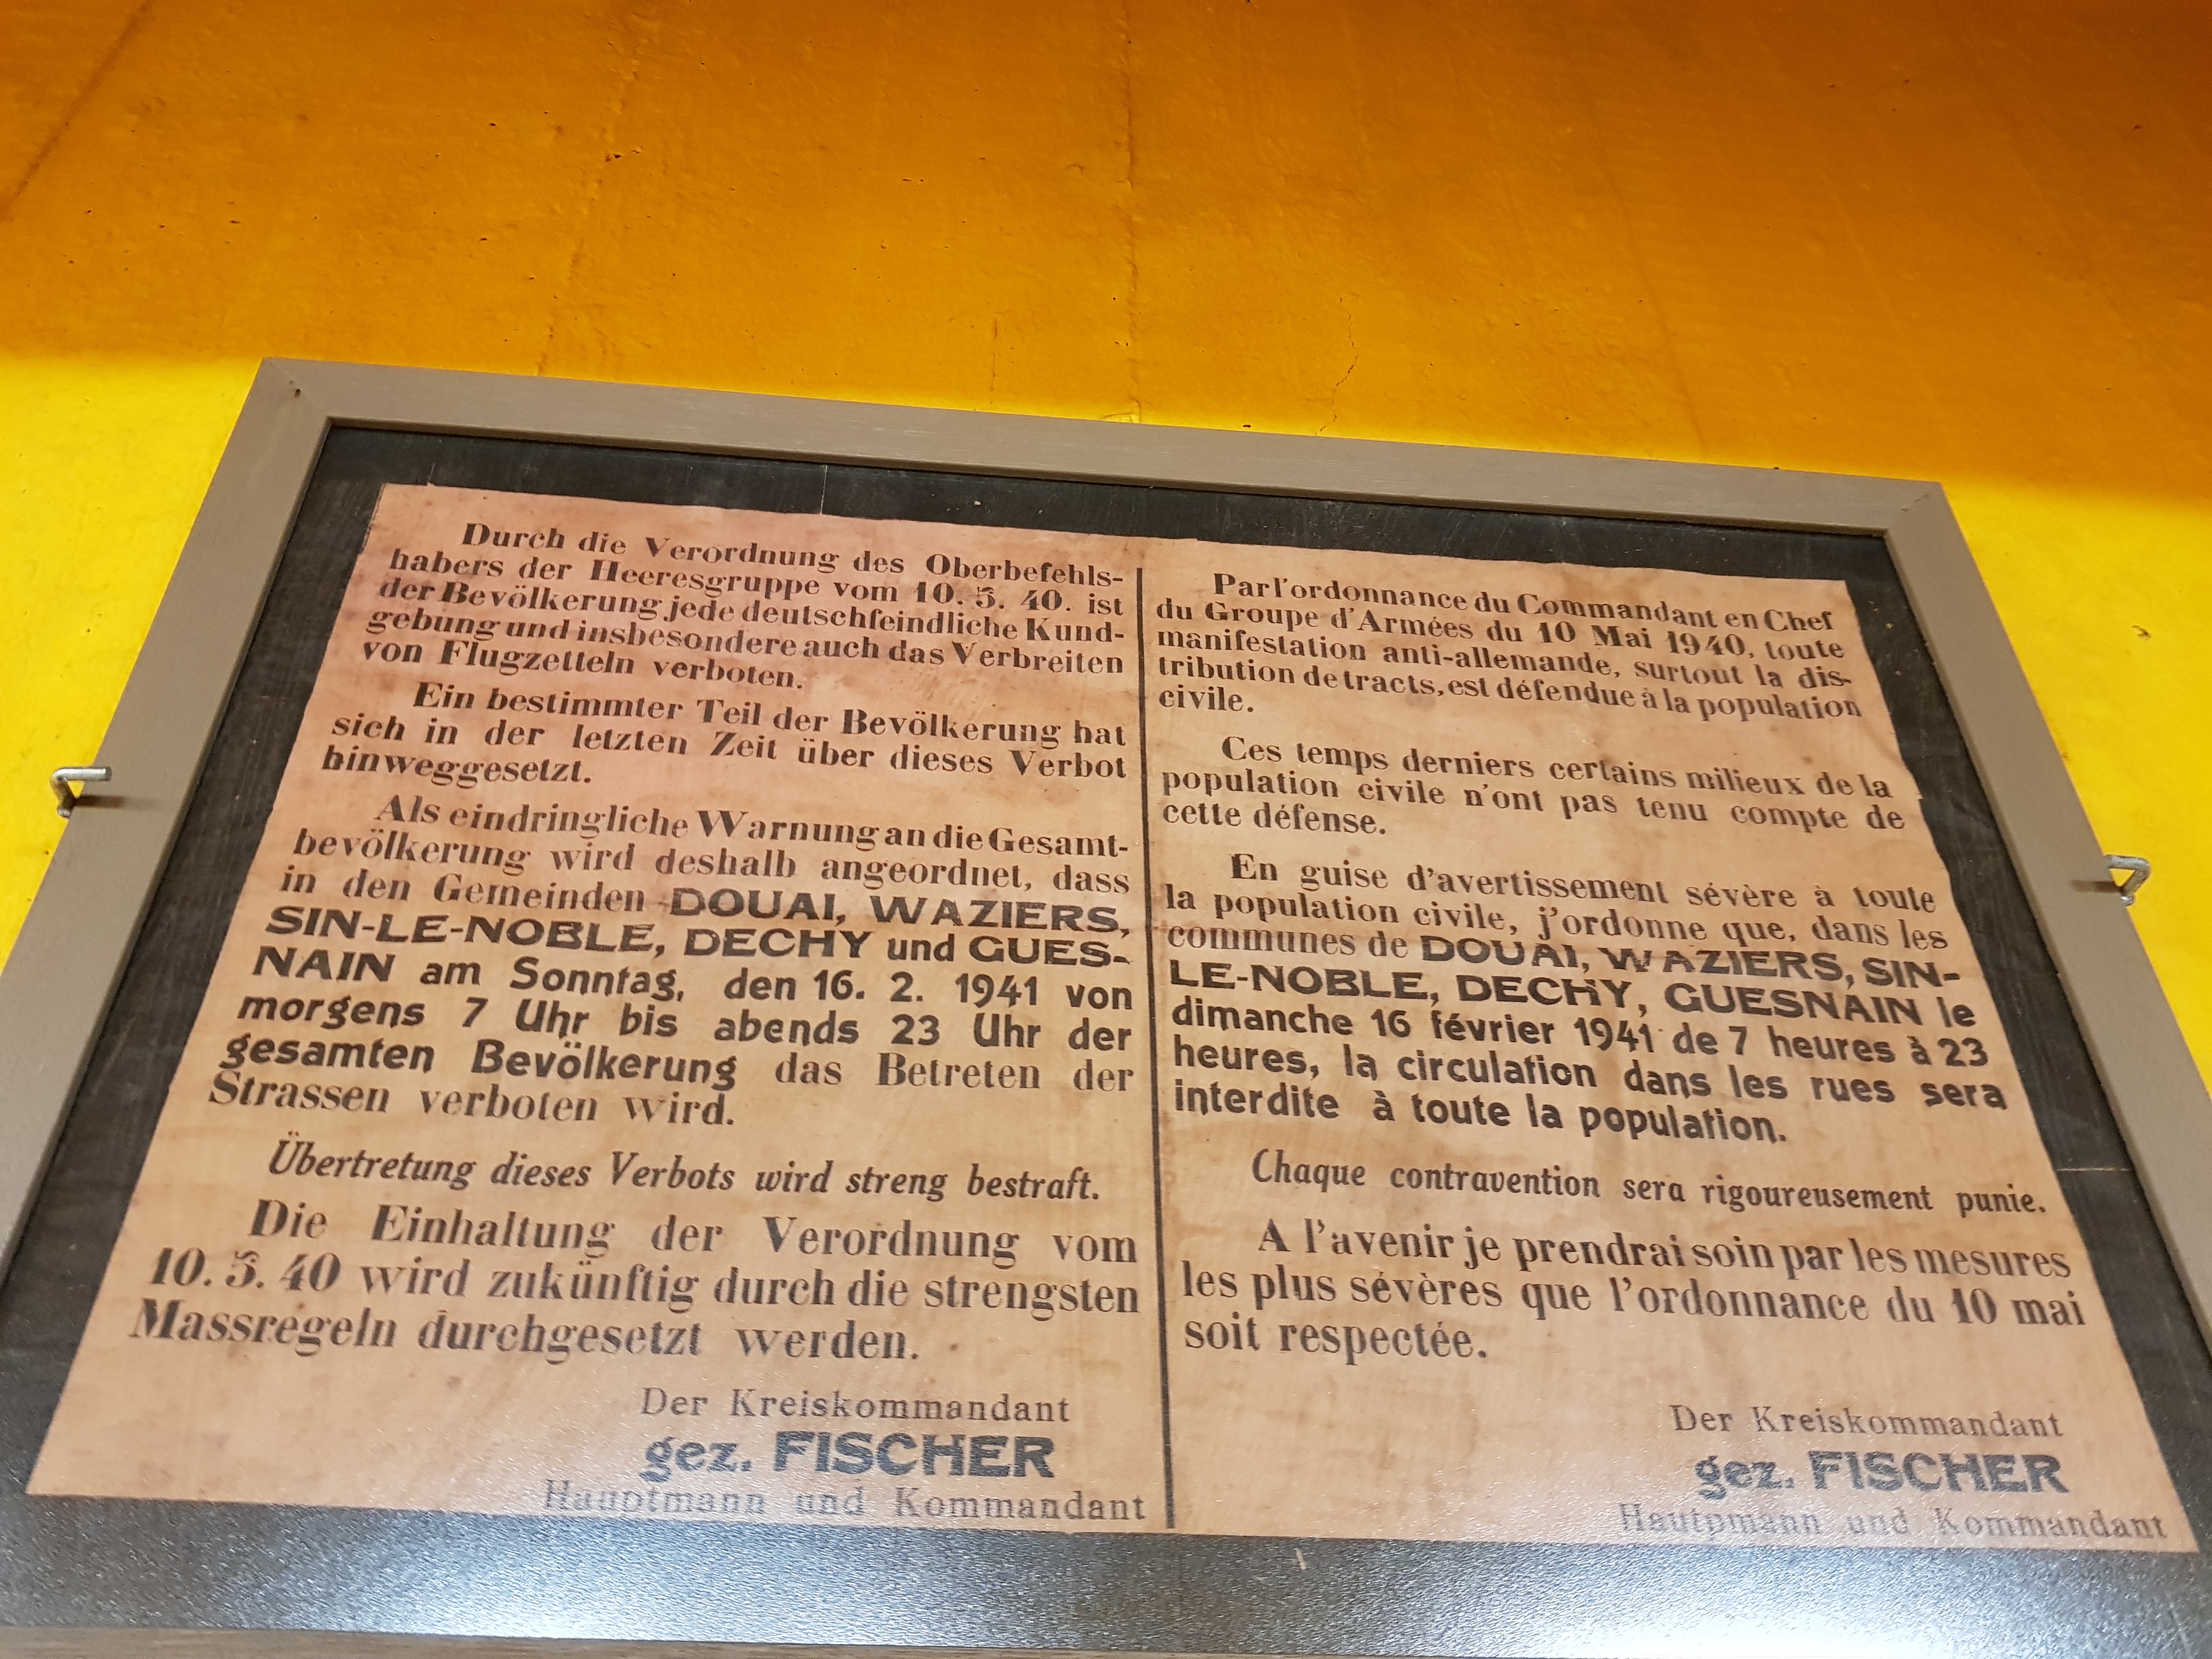 Durch die Verordnung des Oberbefehls-
habers der Heeresgruppe vom 10. 5. 40. ist
der Bevölkerung jede deutschfeindliche Kund-
gebung und insbesondere auch das Verbreiten
von Flugzetteln verboten.
Ein bestimmter Teil der Bevölkerung hat
sich in der letzten Zeit über dieses Verbot
hinweggesetzt.
Als eindringliche Warnung an die Gesamt-
bevölkerung wird deshalb angeordnet, dass
in den Gemeinden DOUAI, WAZIERS,
SIN-LE-NOBLE, DECHY und GUES-
NAIN am Sonntag, den 16. 2. 1941 von
morgens 7 Uhr bis abends 23 Uhr der
gesamten Bevölkerung das Betreten der
Strassen verboten wird.
Übertretung dieses Verbots wird streng bestraft.
Die Einhaltung der Verordnung vom
10. 5. 40 wird zukünftig durch die strengsten
Massregeln durchgesetzt werden.
Der Kreiskommandant
gez. FISCHER
Hauptmann und Kommandant
Par l'ordonnance du Commandant en Chef
du Groupe d'Armées du 10 Mai 1940, toute
manifestation anti-allemande, surtout la dis-
tribution de tracts, est défendue à la population
civile.
Ces temps derniers certains milieux de la
population civile n'ont pas tenu compte de
cette défense.
En guise d'avertissement sévère à toute
la population civile, j'ordonne que, dans les
communes de DOUAI, WAZIERS, SIN-
LE-NOBLE, DECHY, GUESNAIN le
dimanche 16 février 1941 de 7 heures à 23
heures, la circulation dans les rues sera
interdite à toute la population.
Chaque contravention sera rigoureusement punie.
A l'avenir je prendrai soin par les mesures
les plus sévères que l'ordonnance du 10 mai
soit respectée.
Der Kreiskommandant
gez. FISCHER
Hautpmann und Kommandant